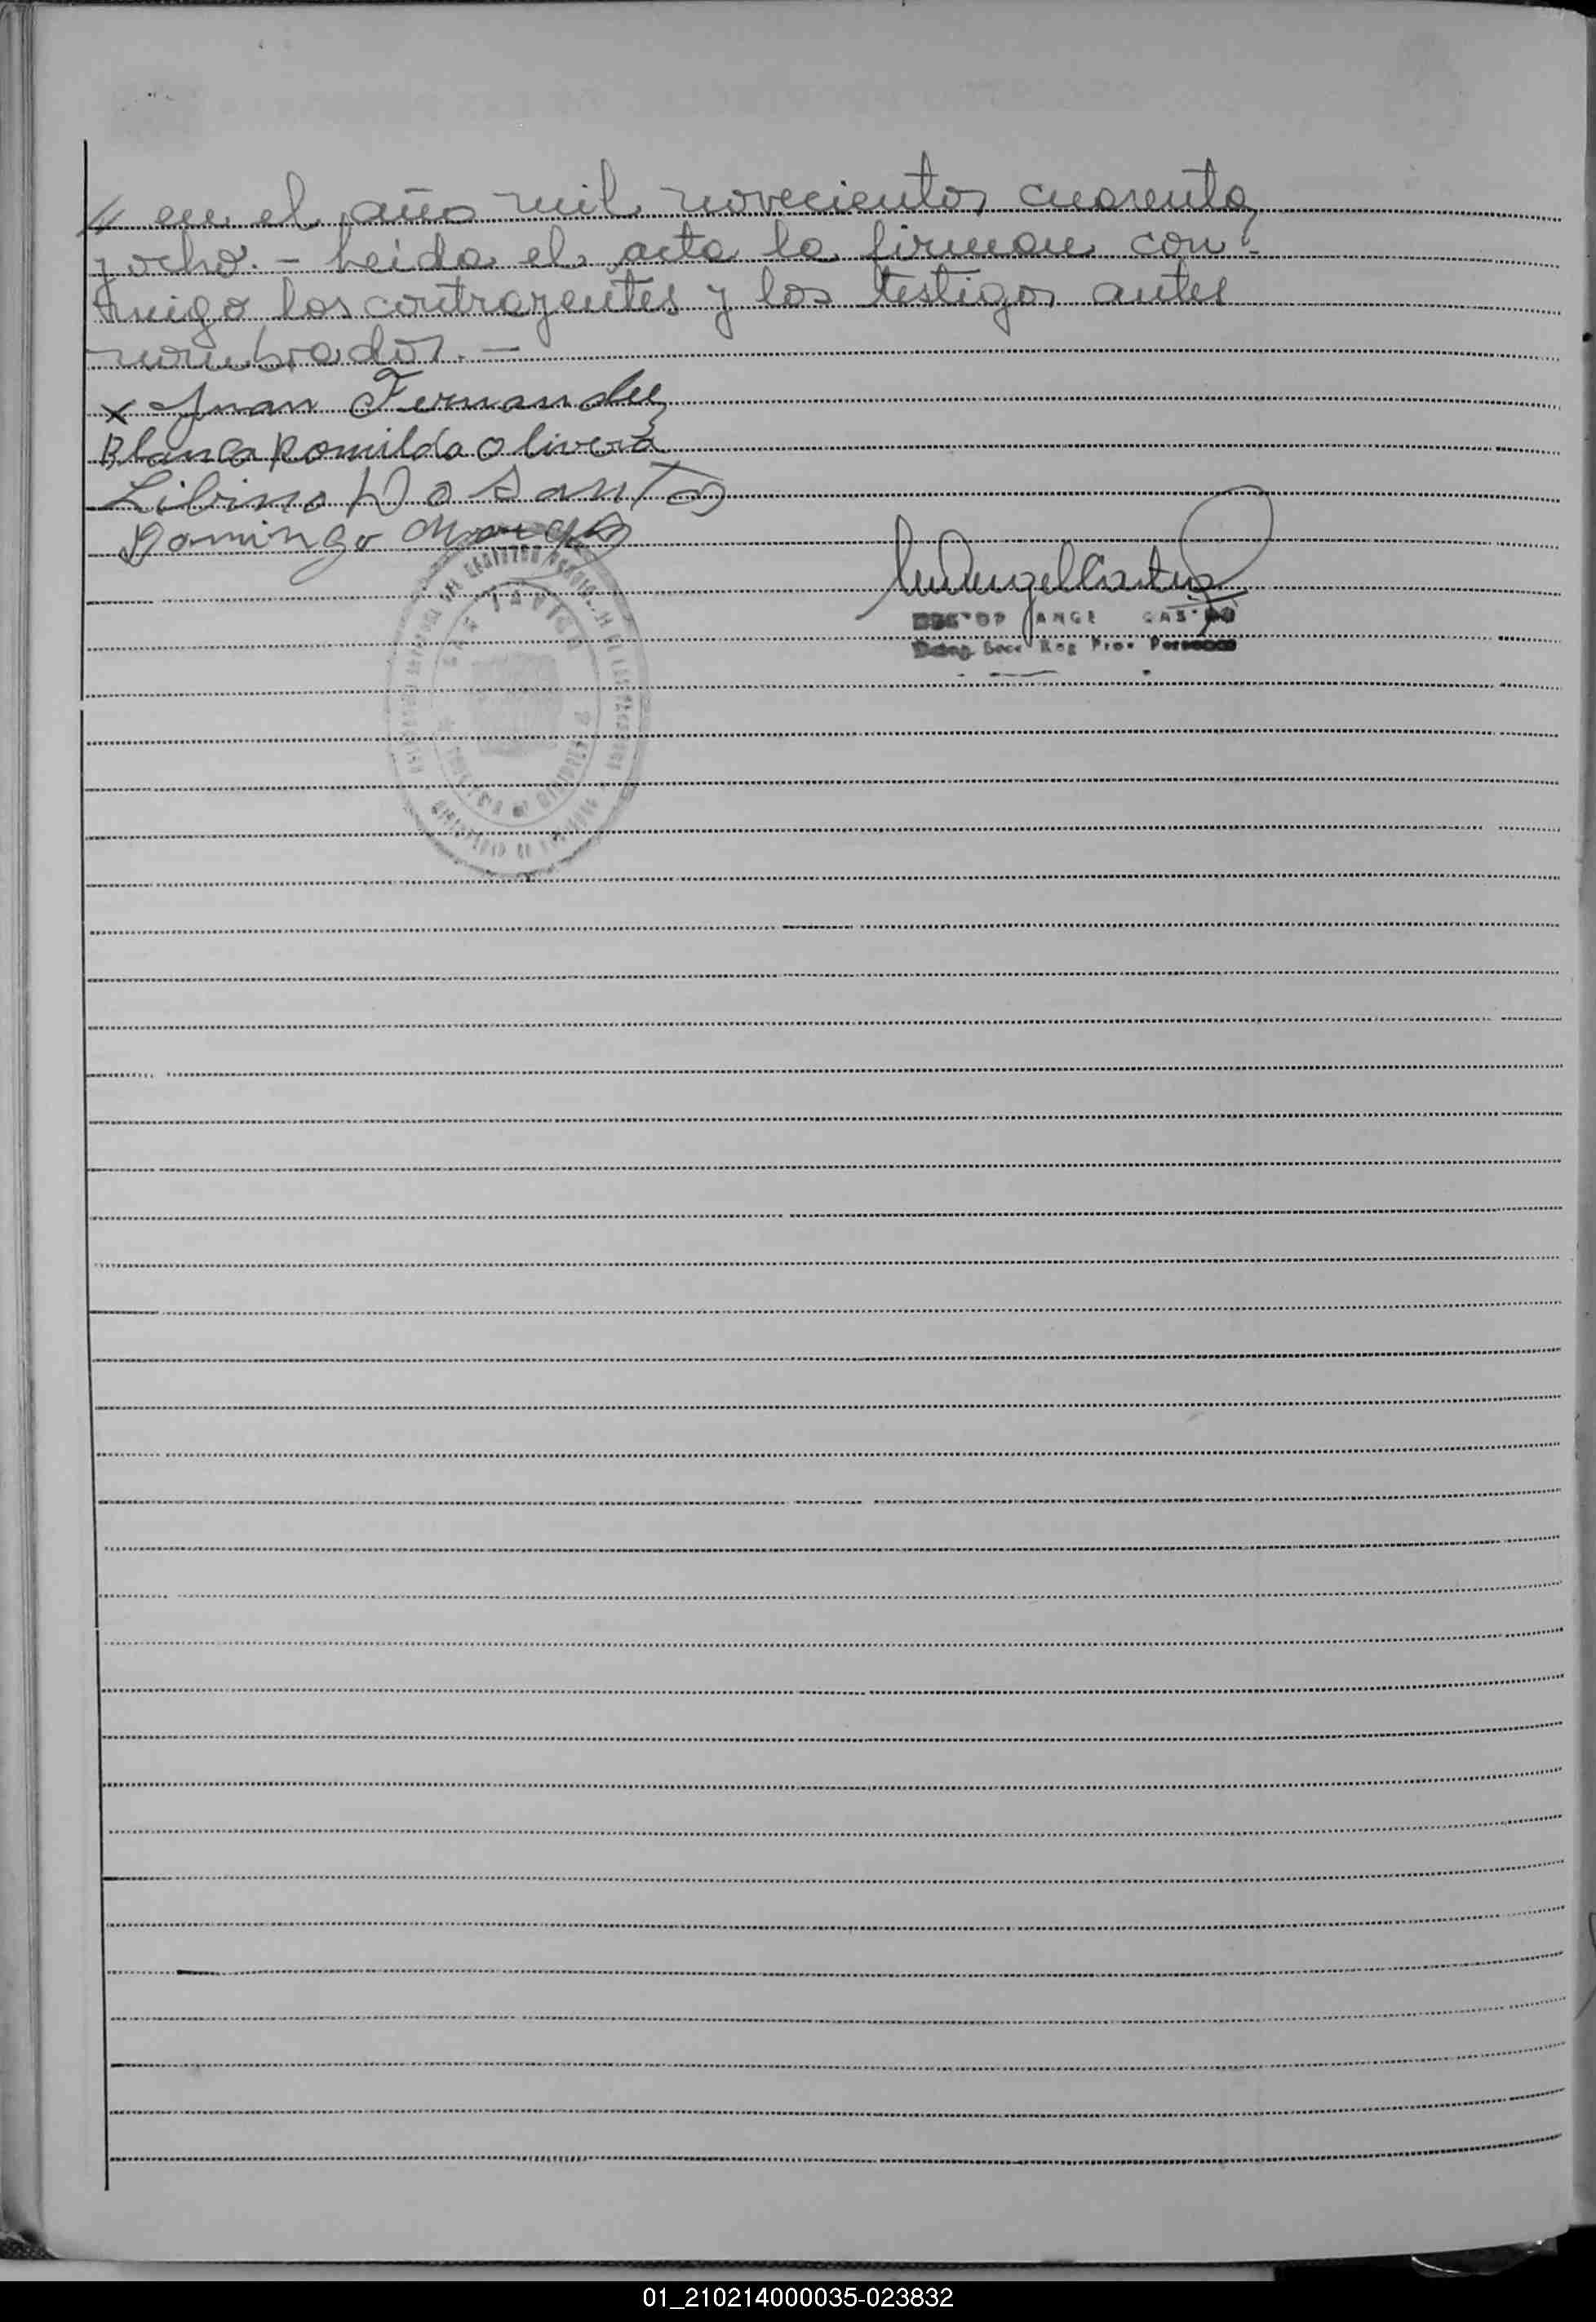 // en el año mil novecientos cuarenta
y ocho. - Leida el acta la firman con-
migo los contrayentes y los testigos antes
nombrados. -
x Juan Fernandez
Blanca Romilda Olivera
Libino Do Santo
Domingo
ANGE CAS
Reg Prov Personas
01_210214000035-023832